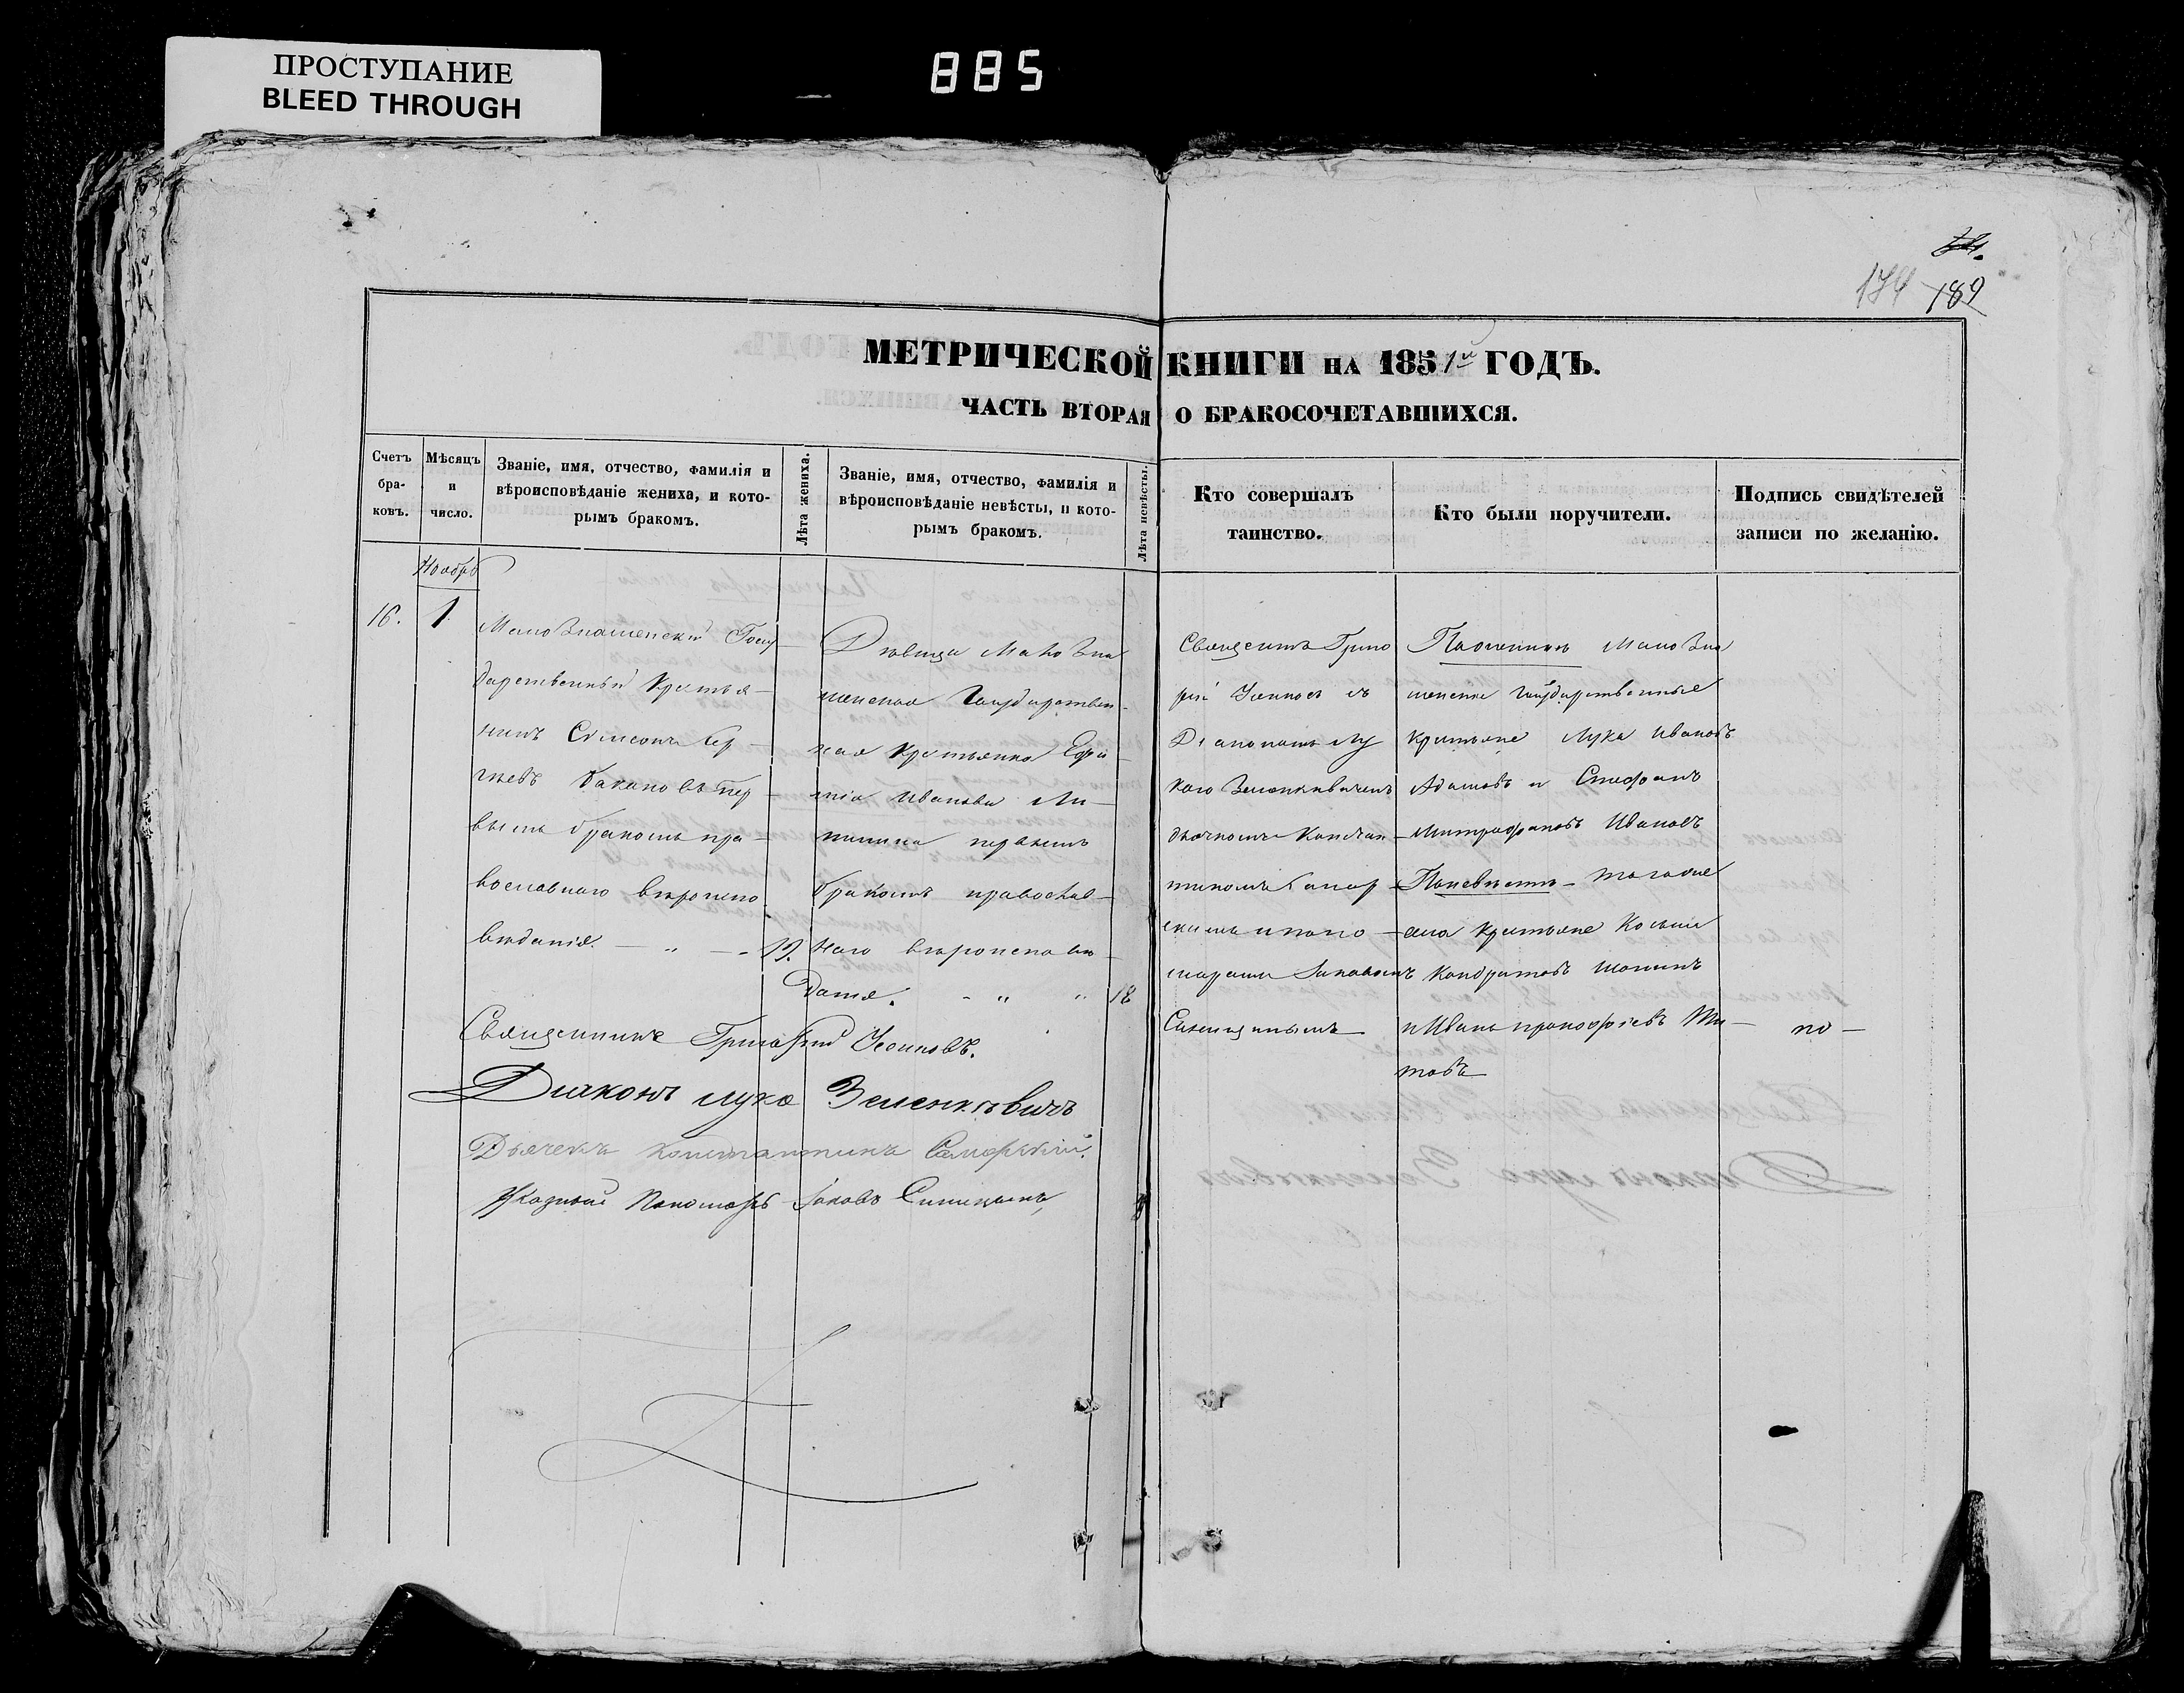 ПРОСТУПАНИЕ
BLEED THROUGH
885
174 189
МЕТРИЧЕСКОЙ КНИГИ НА 1851й ГОДЪ.
ЧАСТЬ ВТОРАЯ О БРАКОСОЧЕТАВШИХСЯ.
Счетъ бра-ковъ.
Мѣсяцъ и число.
Званіе, имя, отчество, фамилія и
вѣроисповѣданіе жениха, и кото-
рымъ бракомъ.
Лѣта жениха.
Званіе, имя, отчество, фамилія и
вѣроисповѣданіе невѣсты, и кото-
рымъ бракомъ.
Лѣта невѣсты.
Кто совершалъ
таинство.
Кто были поручители.
Подпись свидѣтелей
записи по желанію.
Ноябрь
16. 1
Мало Знаменскій Госу
дарственный Крестья-
нинъ Симеонъ Сер-
гѣевъ Бакановъ пер-
вымъ бракомъ пра-
вославнаго вѣроиспо
вѣданія. — „ — 19.
Дѣвица Мало Зна
менская Государствен-
ная Крестьянка Ефи-
мія Иванова
первымъ
бракомъ православ-
наго вѣроисповѣ-
данія. - „ „ 18
Священникъ Григо
рій съ
Діакономъ Лу
кою Зеленкѣвичемъ
дьячкомъ Констан-
тиномъ Самар-
скимъ и поно-
маремъ Іаковомъ
Синицынымъ
По женихѣ Мало Зна
менскіе Государственные
крестьяне Лука Ивановъ
Адамовъ и Стефанъ
Митрофановъ Ивановъ
По невѣстѣ - того же
села крестьяне Косьма
Кондратовъ
и Иванъ Прокофіевъ Ти-
товъ
Священникъ Григорій
Діаконъ Лука Зеленкѣвичъ
Дьячекъ Константинъ Самарскій.
Указный Пономарь Іаковъ Синицынъ,